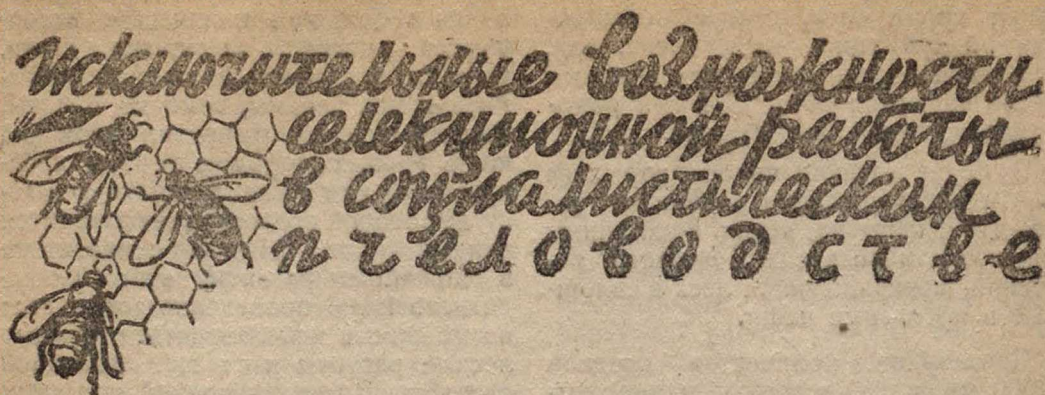 исключительные возможности
селекционной работы
в социалистическом
пчеловодстве